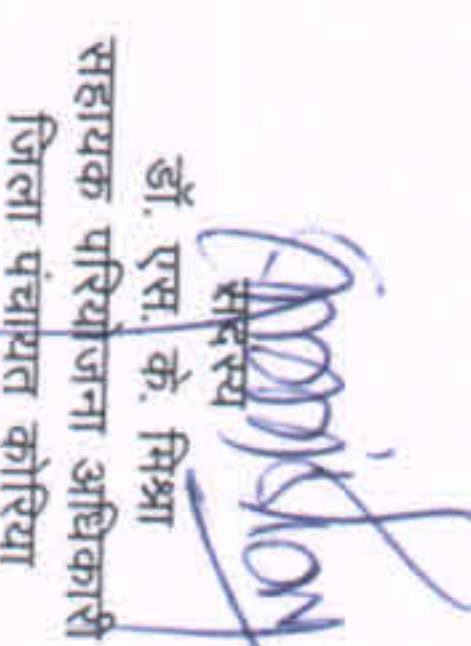 सदस्य
डॉ. एस. के. मिश्रा
सहायक परियोजना अधिकारी
जिला पंचायत कोरिया